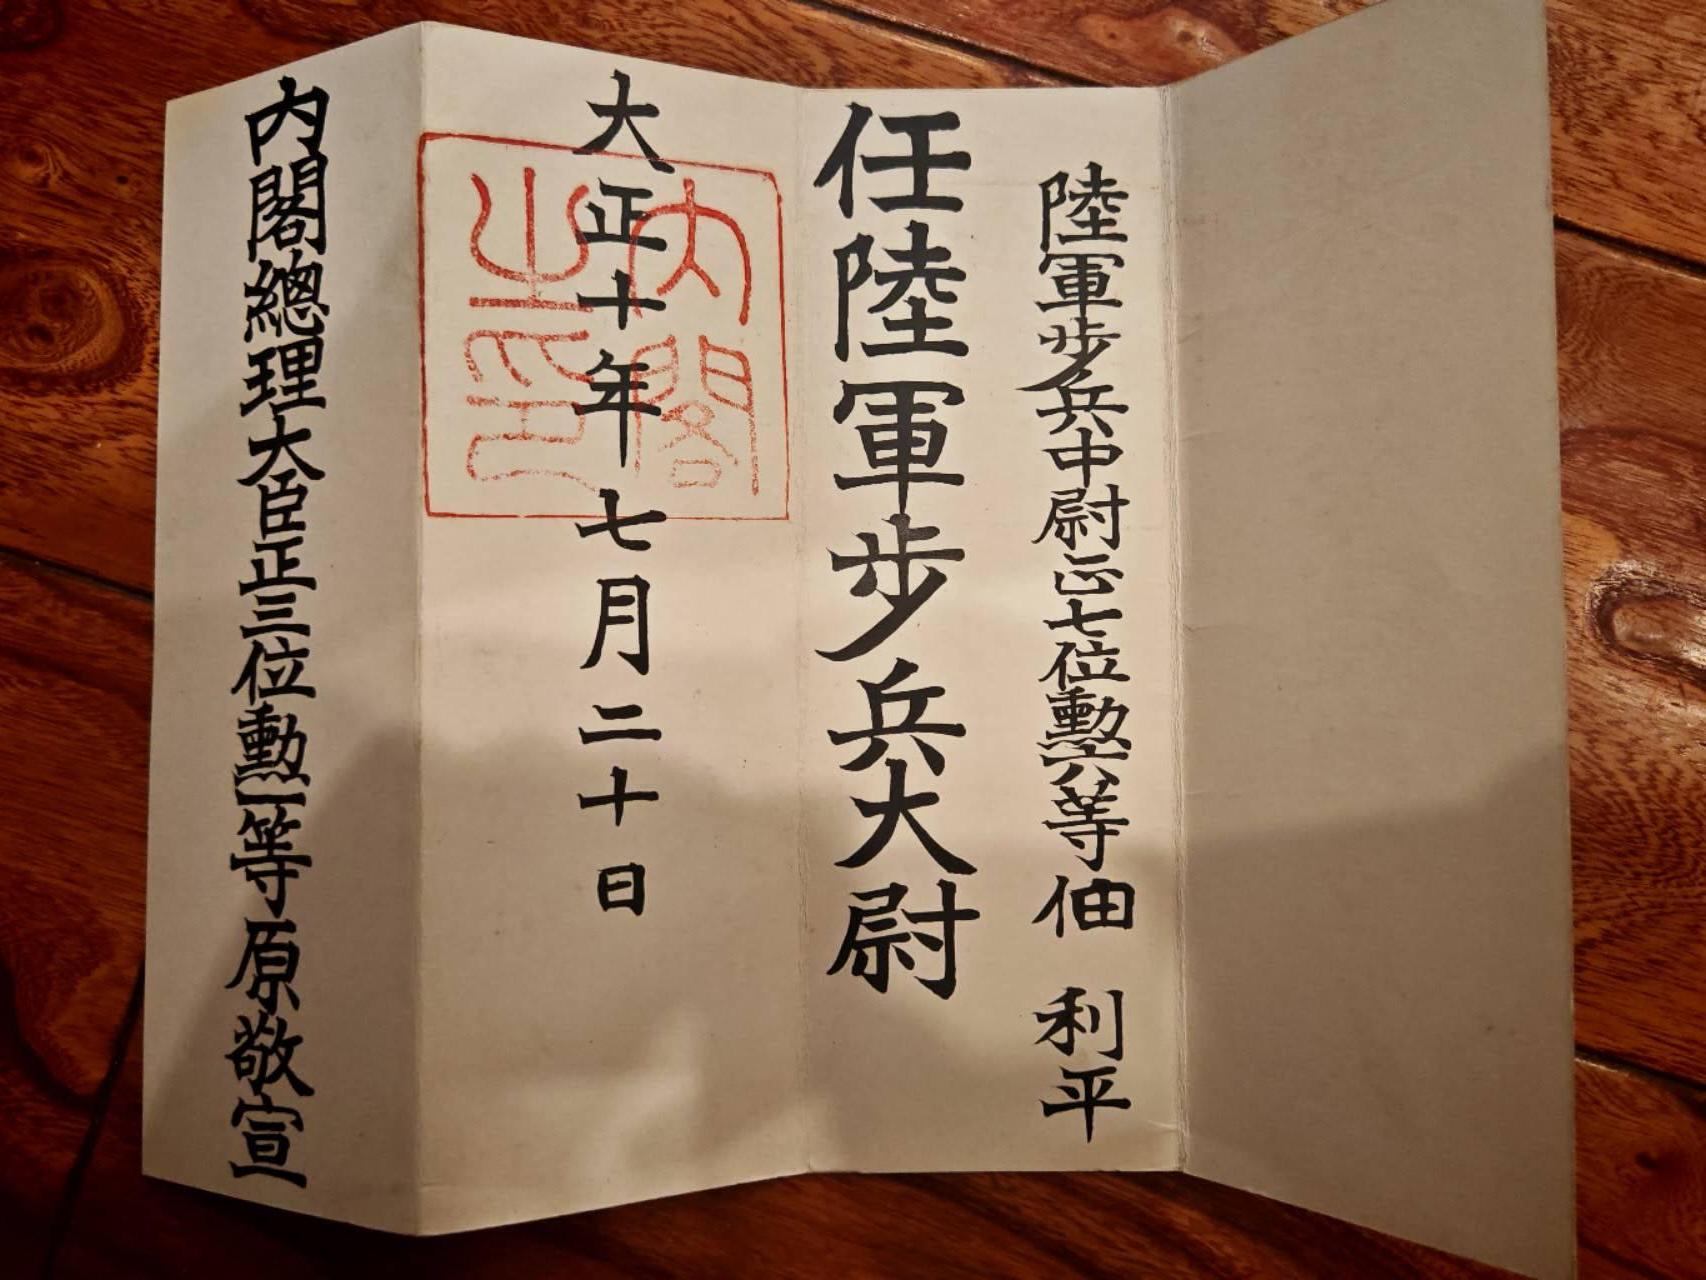 陸軍歩兵中尉正七位勲六等伷 利平
任陸軍歩兵大尉
大正十年七月二十日
内閣之印
内閣總理大臣正三位勲一等原敬宣